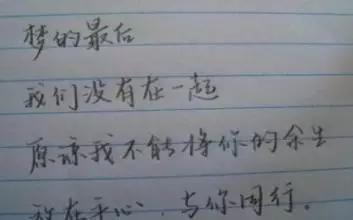 梦的最后
我们没有在一起
原谅我不能将你的余生
放在手心,与你同行。